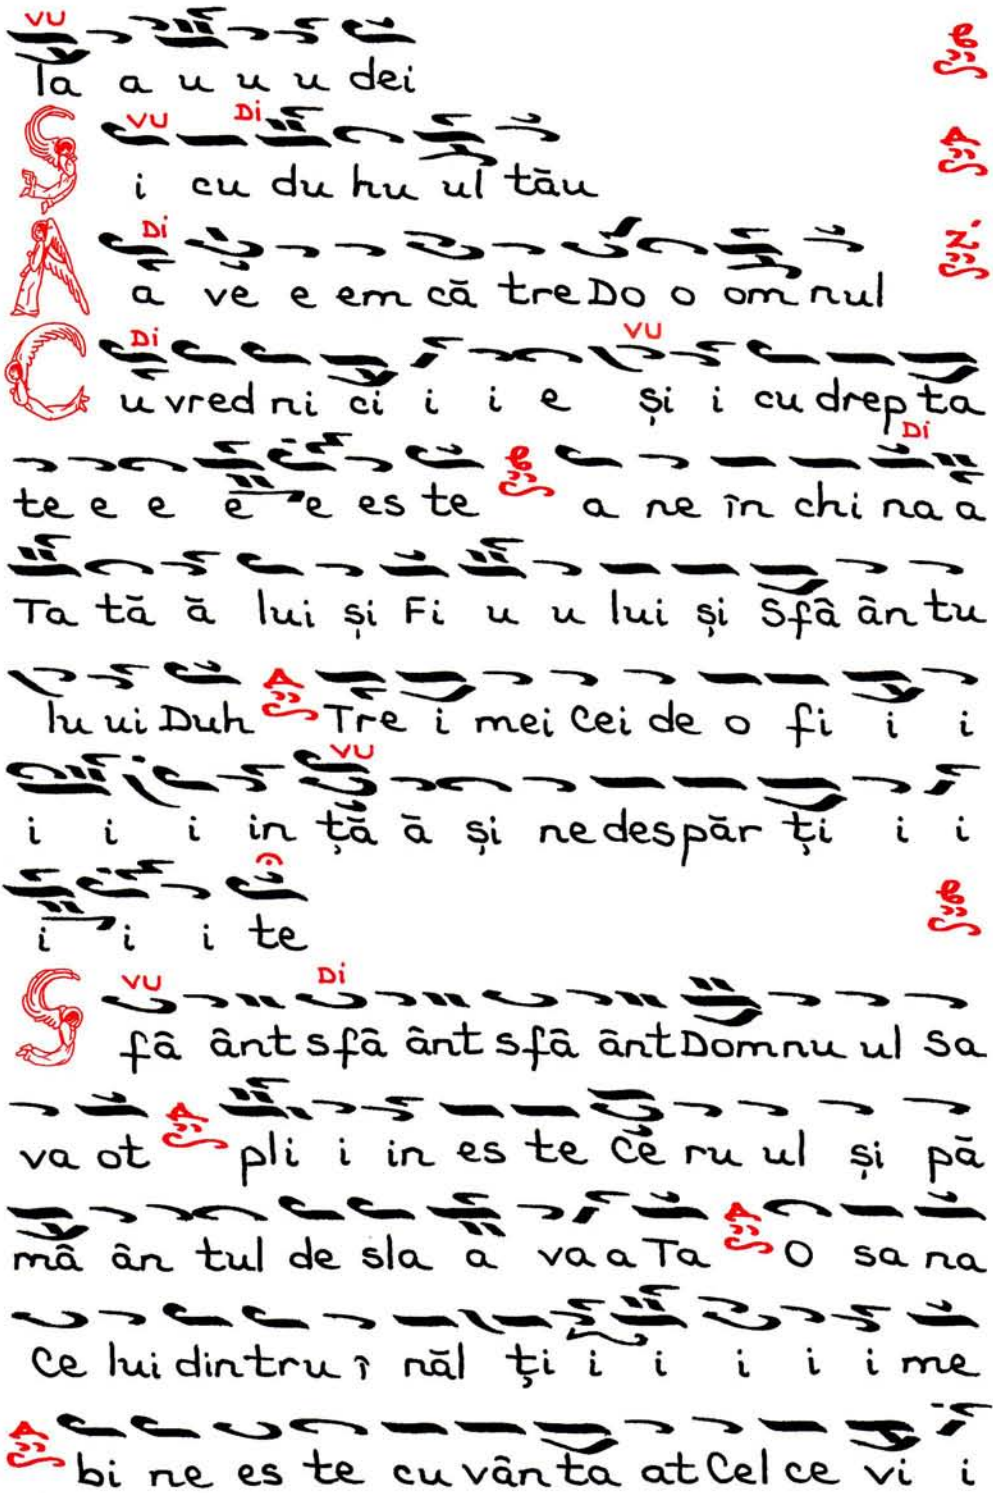 VU
la a u u u dei
VU Di
S i cu du hu ul tău
Di
A a ve e em că tre Do o om nul
Di VU
C u vred ni ci i i e și i cu drep ta
Di
te e e e e es te a ne în chi na a
Ta tă ă lui și Fi u u lui și Sfâ ân tu
lu ui Duh Tre i mei Cei de o fi i i
VU
i i i in ță ă și ne des păr ți i i
i i i te
VU Di
S fâ ânt sfâ ânt sfâ ânt Domnu ul Sa
va ot pli i in es te ce ru ul și pă
mâ ân tul de sla a va a Ta O sa na
Ce lui din tru î năl ți i i i i i me
bi ne es te cu vân ta at Cel ce vi i